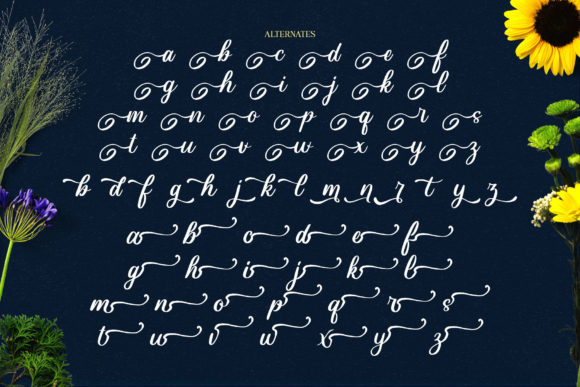 ALTERNATES
a b c d e f
g h i j k l
m n o p q r s
t u v w x y z
b d f g h j k l m n r t y z
a b c d e f
g h i j k l
m n o p q r s
t u v w x y z